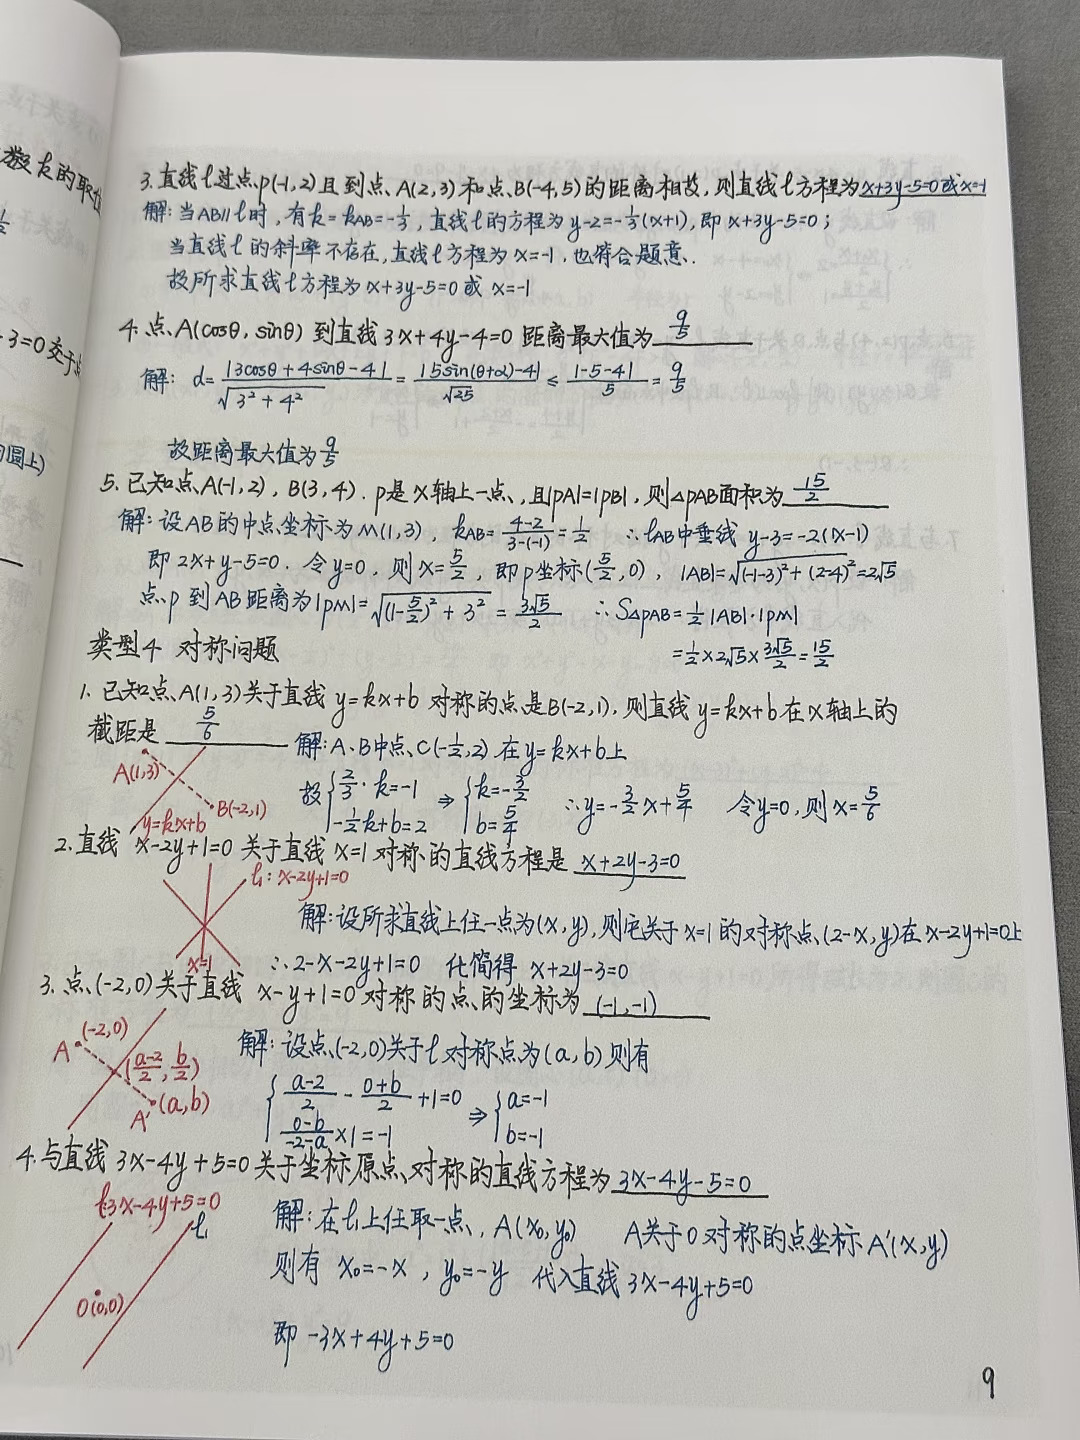 数k的取值
-3=0交于点
圆上)
3.直线l过点p(-1,2)且到点A(2,3)和点B(-4,5)的距离相故,则直线l方程为x+3y-5=0或x=-1
解:当AB∥l时,有k=kAB=-1/3,直线l的方程为y-2=-1/3(x+1),即x+3y-5=0;
当直线l的斜率不存在,直线l方程为x=-1,也符合题意.
故所求直线l方程为x+3y-5=0或x=-1
4.点A(cosθ,sinθ)到直线3x+4y-4=0距离最大值为 9/5
解: d=|3cosθ+4sinθ-4|/√(3²+4²)=|5sin(θ+α)-4|/√25≤|-5-4|/5=9/5
故距离最大值为9/5
5.已知点A(-1,2),B(3,4).p是x轴上一点,且|pA|=|pB|,则△pAB面积为 15/2
解:设AB的中点坐标为M(1,3),kAB=(4-2)/(3-(-1))=1/2 ∴lAB中垂线y-3=-2(x-1)
即2x+y-5=0.令y=0,则x=5/2,即p坐标(5/2,0),|AB|=√((-1-3)²+(2-4)²)=2√5
点p到AB距离为|pM|=√((1-5/2)²+3²)=3√5/2 ∴S△pAB=1/2|AB|·|pM|
=1/2×2√5×3√5/2=15/2
类型4 对称问题
1.已知点A(1,3)关于直线y=kx+b对称的点是B(-2,1),则直线y=kx+b在x轴上的
截距是 5/6
解:A、B中点C(-1/2,2)在y=kx+b上
A(1,3)
B(-2,1)
y=kx+b
故{2/3·k=-1 -1/2k+b=2 ⇒ {k=-3/2 b=5/4 ∴y=-3/2x+5/4 令y=0,则x=5/6
2.直线x-2y+1=0关于直线x=1对称的直线方程是 x+2y-3=0
l₁:x-2y+1=0
x=1
解:设所求直线上任一点为(x,y),则它关于x=1的对称点(2-x,y)在x-2y+1=0上
∴2-x-2y+1=0 化简得 x+2y-3=0
3.点(-2,0)关于直线x-y+1=0对称的点的坐标为 (-1,-1)
A (-2,0)
((a-2)/2,b/2)
A'(a,b)
解:设点(-2,0)关于l对称点为(a,b)则有
{(a-2)/2-(0+b)/2+1=0 (0-b)/(-2-a)×1=-1 ⇒ {a=-1 b=-1
4.与直线3x-4y+5=0关于坐标原点对称的直线方程为 3x-4y-5=0
l:3x-4y+5=0
l₁
O(0,0)
解:在l₁上任取一点,A(x₀,y₀) A关于O对称的点坐标A'(x,y)
则有x₀=-x,y₀=-y 代入直线3x-4y+5=0
即-3x+4y+5=0
9